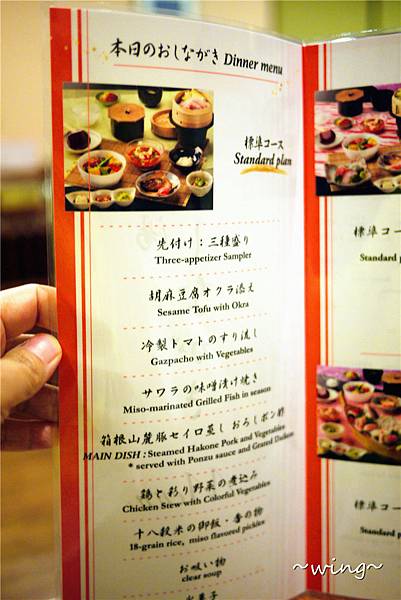 本日のおしながき Dinner menu
標準コース
Standard plan
先付け：三種盛り
Three-appetizer Sampler
胡麻豆腐オクラ添え
Sesame Tofu with Okra
冷製トマトのすり流し
Gazpacho with Vegetables
サワラの味噌漬け焼き
Miso-marinated Grilled Fish in season
箱根山麓豚セイロ蒸し おろしポン酢
MAIN DISH : Steamed Hakone Pork and Vegetables
* served with Ponzu sauce and Grated Daikon
鶏と彩り野菜の煮込み
Chicken Stew with Colorful Vegetables
十八穀米の御飯・香の物
18-grain rice, miso flavored pickles
お吸い物
clear soup
水菓子
標準コー
Standard p
標準コ
Standard
~wing~